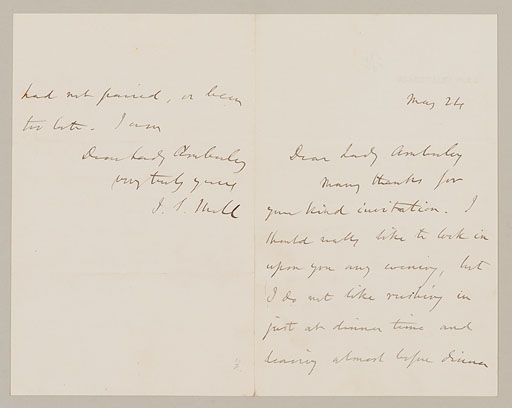 May 24
Dear Lady Amberley
Many thanks for
your kind invitation. I
should really like to look in
upon you any evening, but
I do not like rushing in
just at dinner time and
leaving almost before dinner
had not paired, or been
too late. I am
Dear Lady Amberley
very truly yours
J. S. Mill